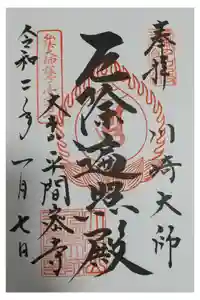 奉拝
川崎大師
厄除遍照殿
大本山平間寺
令和二年
一月七日